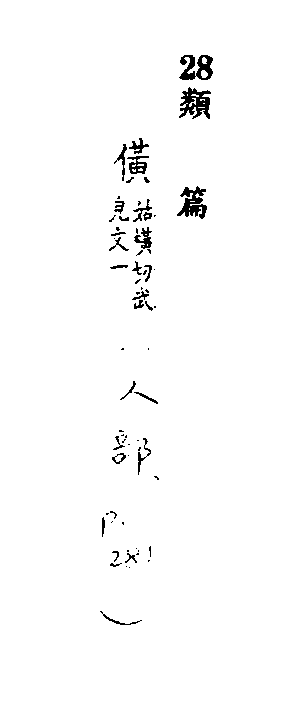 28類篇
僙 姑橫切武皃文一
人部、p.281)